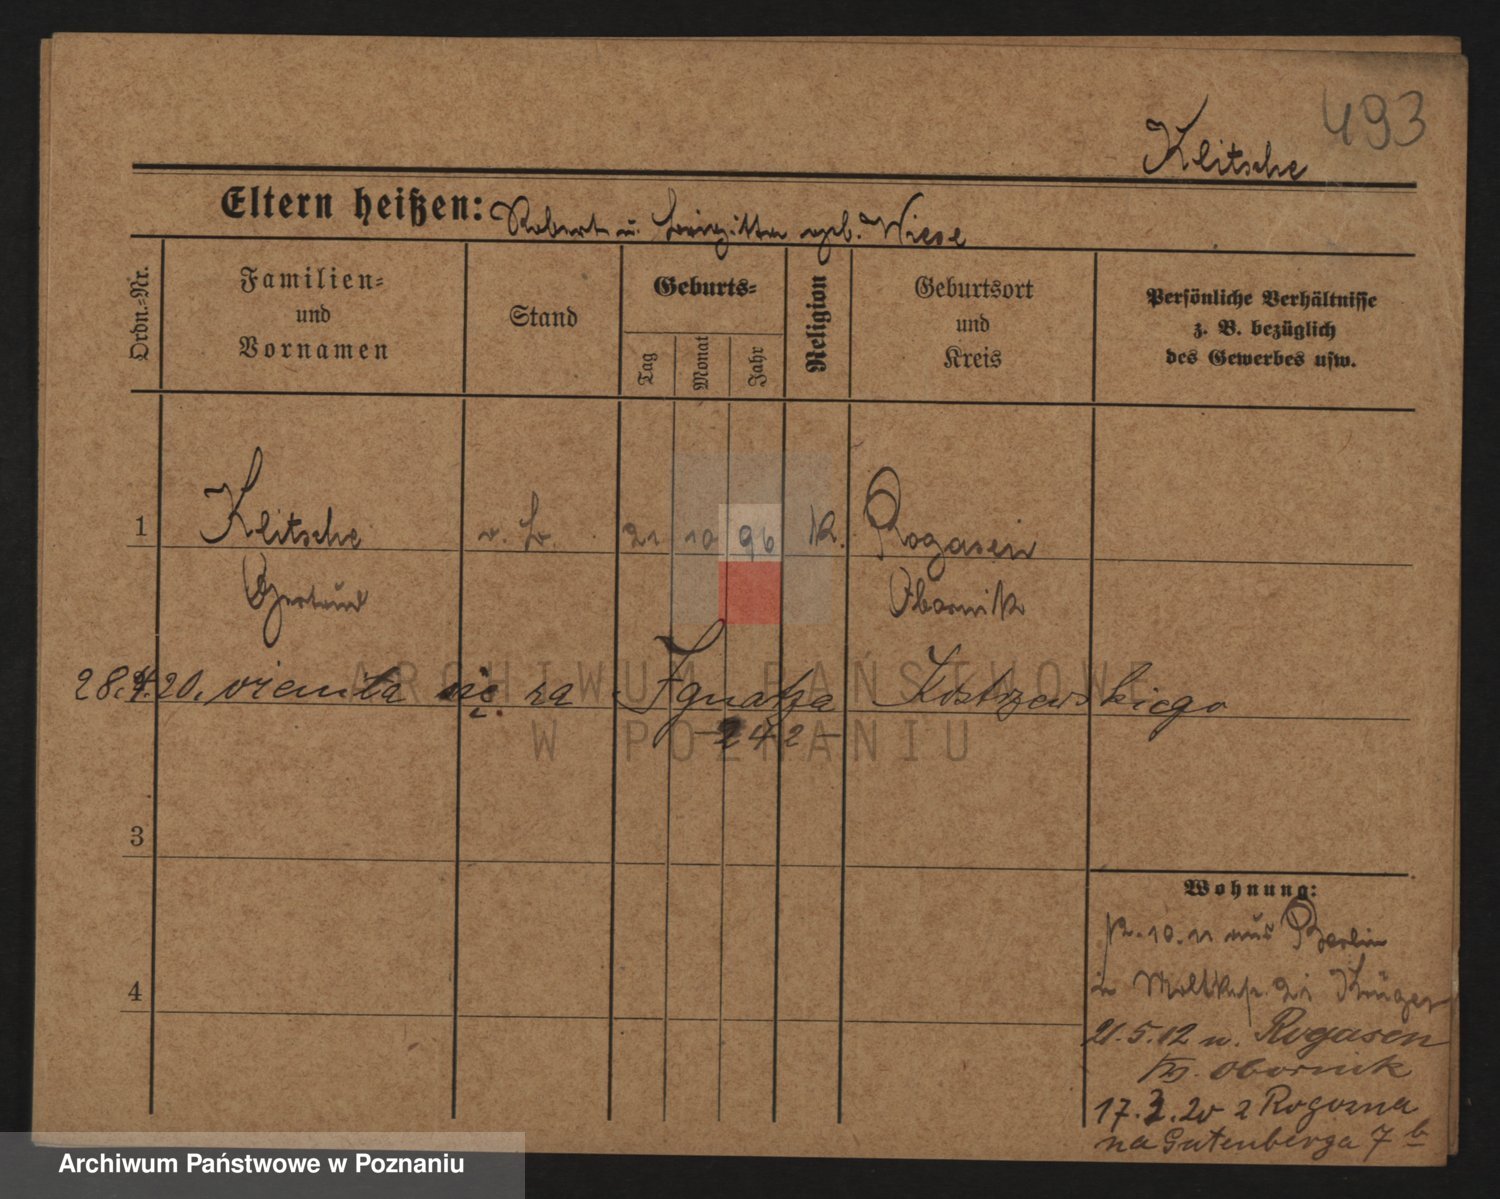 493
Klitsche
Eltern heißen: Robert u. Brigitta geb. Wiese
Ordn.-Nr.
Familien-
und
Vornamen
Stand
Geburts-
Tag
Monat
Jahr
Religion
Geburtsort
und
Kreis
Persönliche Verhältnisse
z. B. bezüglich
des Gewerbes usw.
1 Klitsche 21 10 96 K. Rogasen
Gertrud Obornik
28.4.20. się za Ignatza Kostrzewskiego
- 242 -
3
4
Wohnung:
10.11 aus Berlin
in Moltkestr. 21 Krüger
21.5.12 n. Rogasen
Kr. Obornik
17.3.20 z Rogozna
na Gutenberga 7 b
ARCHIWUM PAŃSTWOWE
W POZNANIU
Archiwum Państwowe w Poznaniu